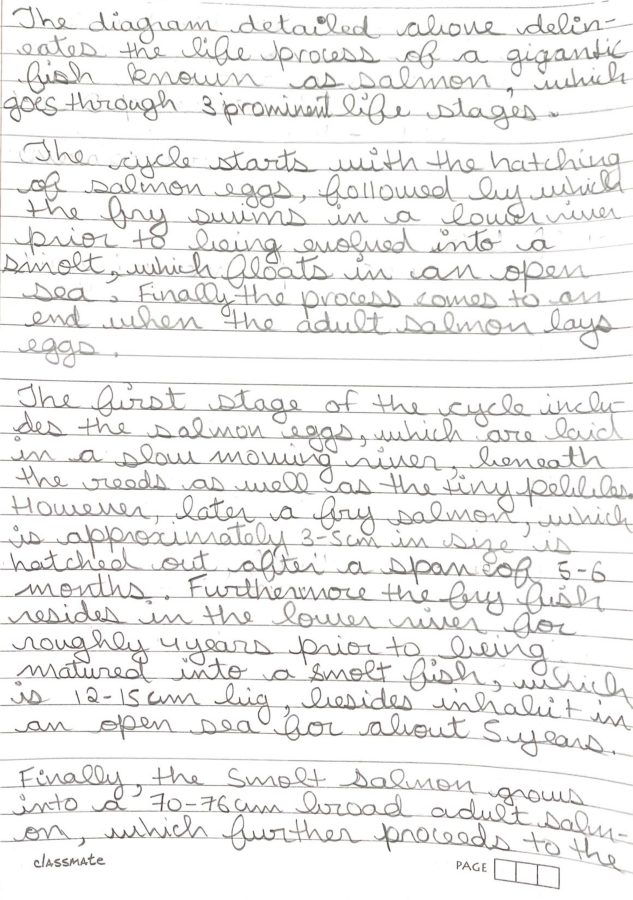 The diagram detailed above delin-
eates the life process of a gigantic
fish known as salmon, which
goes through 3 prominent life stages.
The cycle starts with the hatching
of salmon eggs, followed by which
the fry swims in a lower river
prior to being evolved into a
smolt, which floats in an open
sea. Finally the process comes to an
end when the adult salmon lays
eggs.
The first stage of the cycle inclu-
des the salmon eggs, which are laid
in a slow moving river, beneath
the reeds as well as the tiny pebbles.
However, later a fry salmon, which
is approximately 3-5cm in size is
hatched out after a span of 5-6
months. Furthermore the fry fish
resides in the lower river for
roughly 4 years prior to being
matured into a smolt fish, which
is 12-15 cm big, besides inhabit in
an open sea for about 5 years.
Finally, the Smolt salmon grows
into a 70-76cm broad adult salm-
on, which further proceeds to the
classmate
PAGE